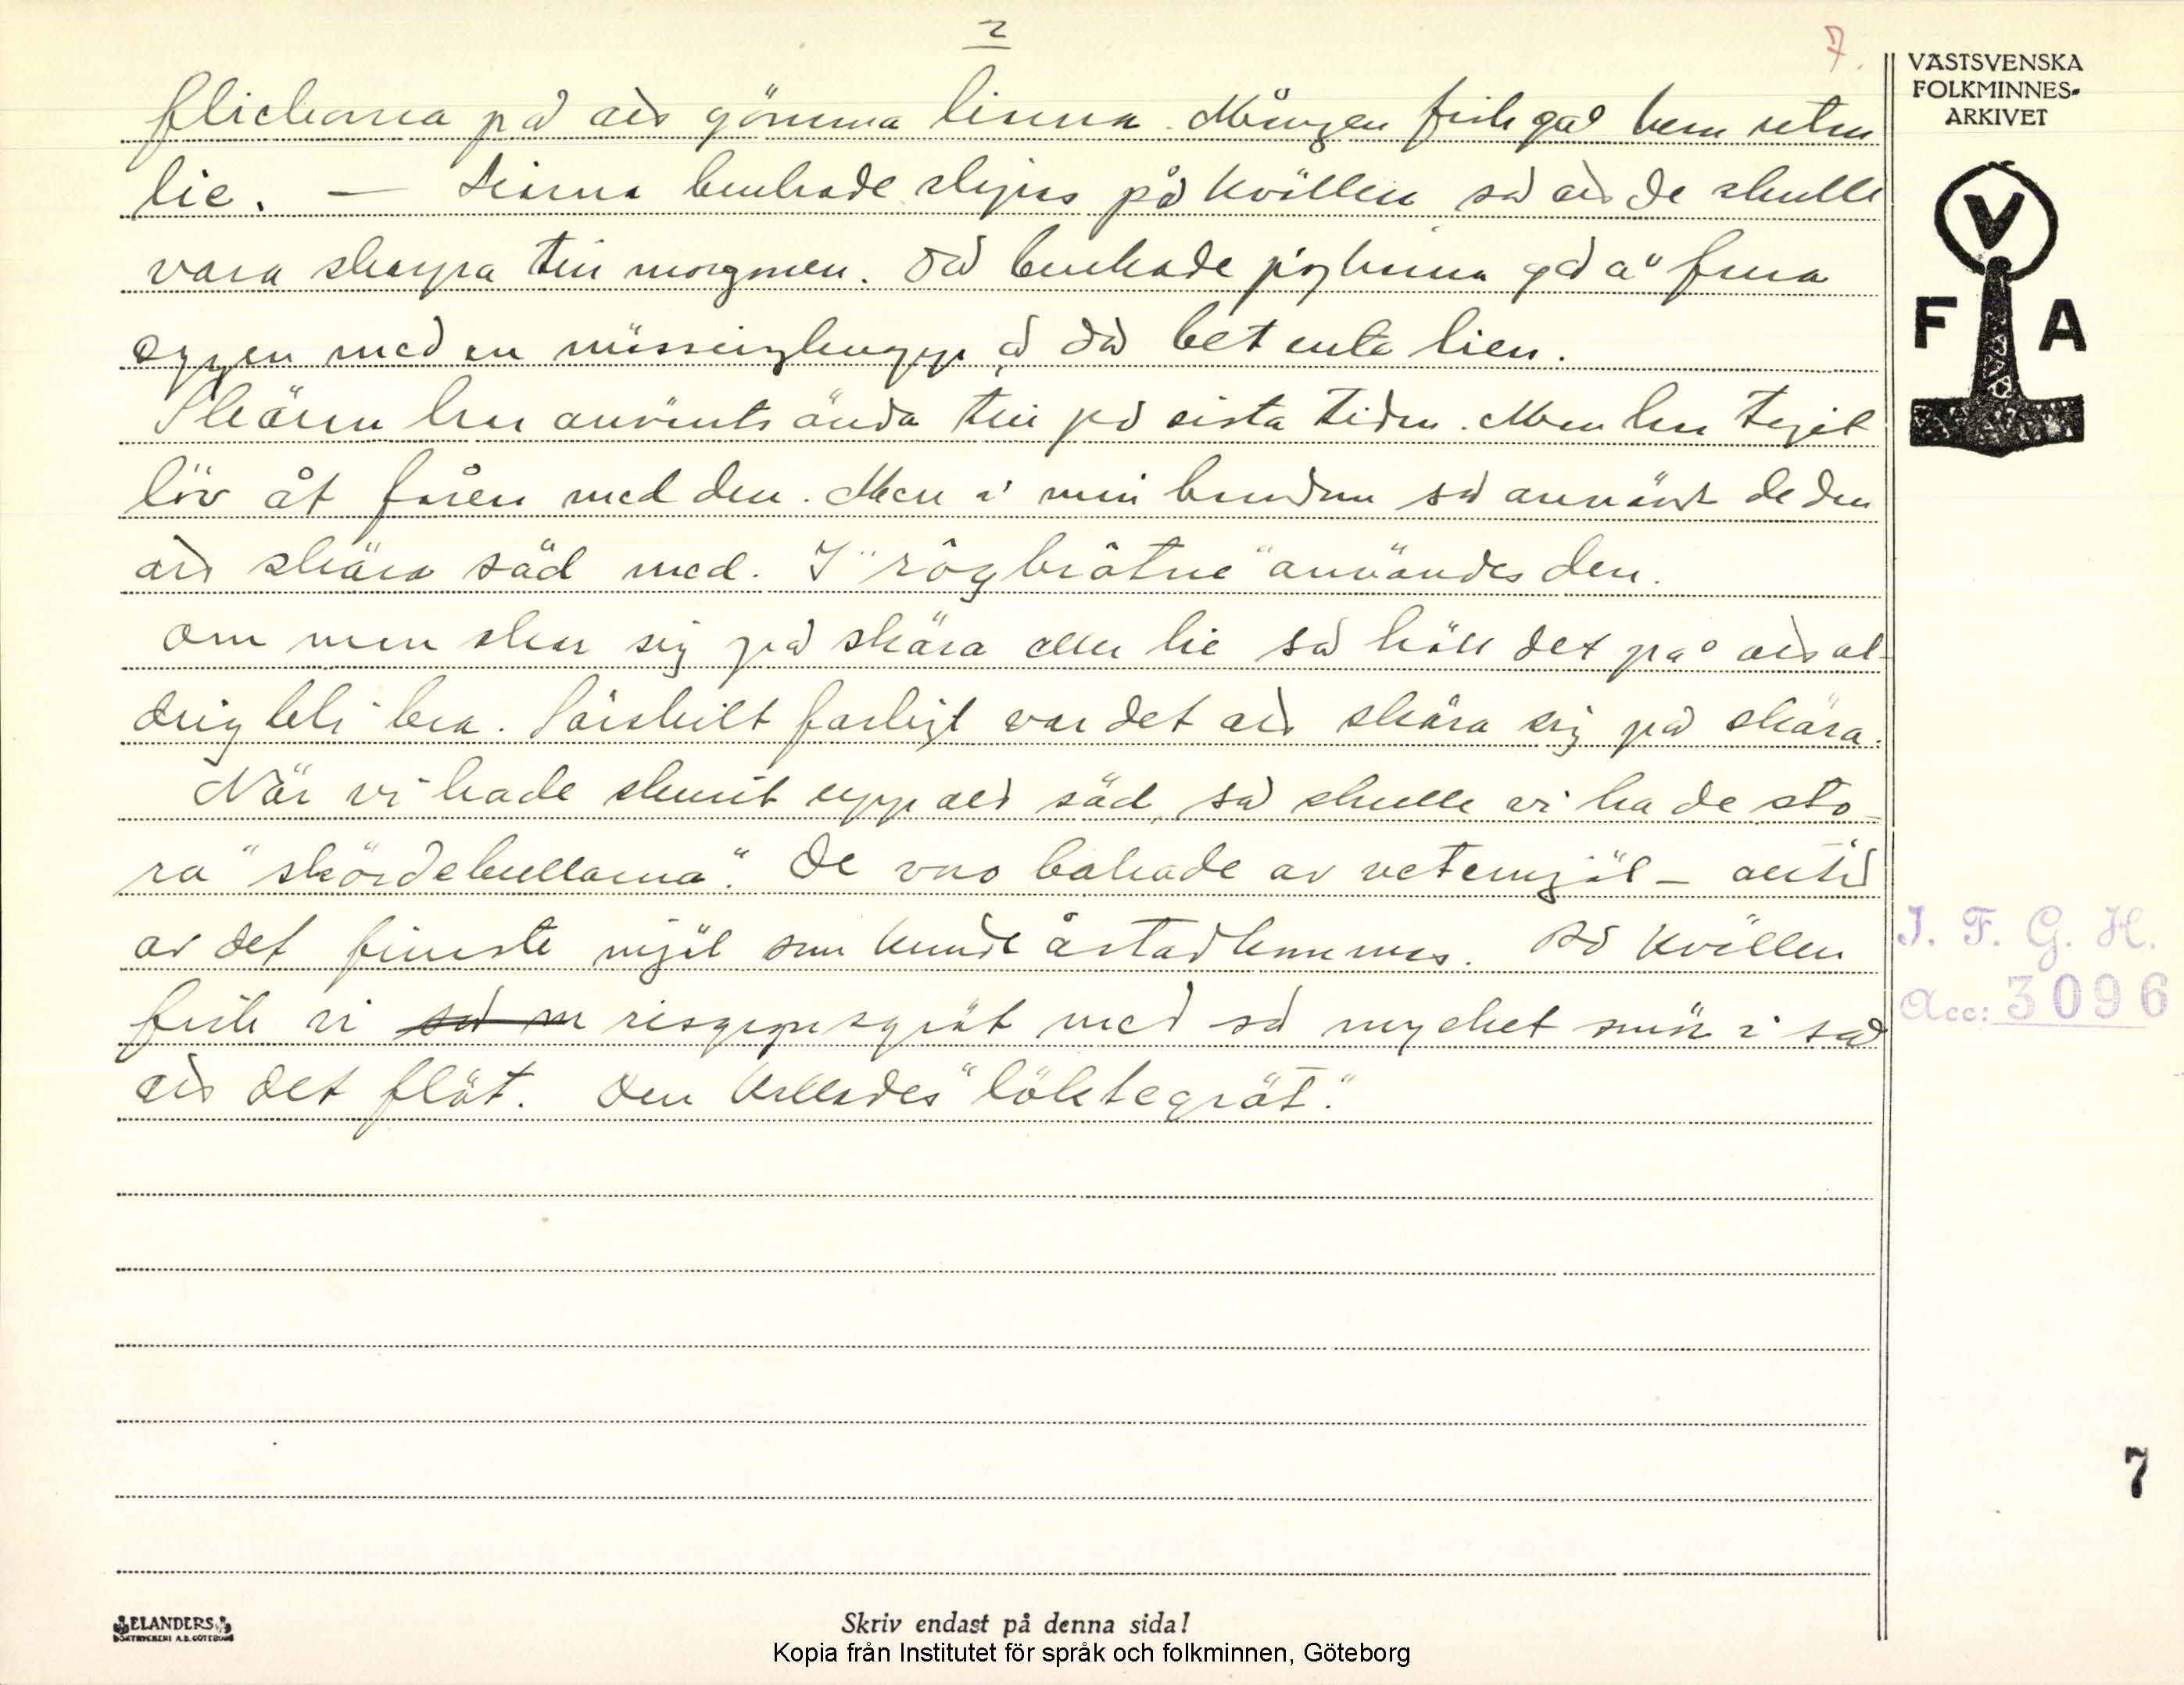 2
7.
VÄSTSVENSKA
FOLKMINNES-
ARKIVET
V
F A
flickorna på att gömma liarna. Mången fick gå hem utan
lie. — Liarna brukade slipas på kvällen så att de skulle
vara skarpa till morgonen. Då brukade pigorna gå å fura
eggen med en mässingknapp å då bet ente lien.
Skäran har använts ända till på sista tiden. Man har tagit
löv åt fåren med den. Men i min barndom så använt de den
att skära säd med. I "rôgbrôtne" användes den.
Om man skar sig på skära eller lie så höll det på att al-
drig bli bra. Särskilt farligt var det att skära sig på skära.
När vi hade skurit upp all säd, så skulle vi ha de sto-
ra "skördekullarna". De vro bakade av vetemjöl - alltid
av det finaste mjöl som kunde åstadkommas. På kvällen
fick vi risgrynsgröt med så mycket smör i så
att det flöt. Den kallades "löktegröt".
I. F. G. H.
Acc: 3096
7
ELANDERS
BOKTRYCKERI A.B. GÖTEBORG
Skriv endast på denna sida!
Kopia från Institutet för språk och folkminnen, Göteborg